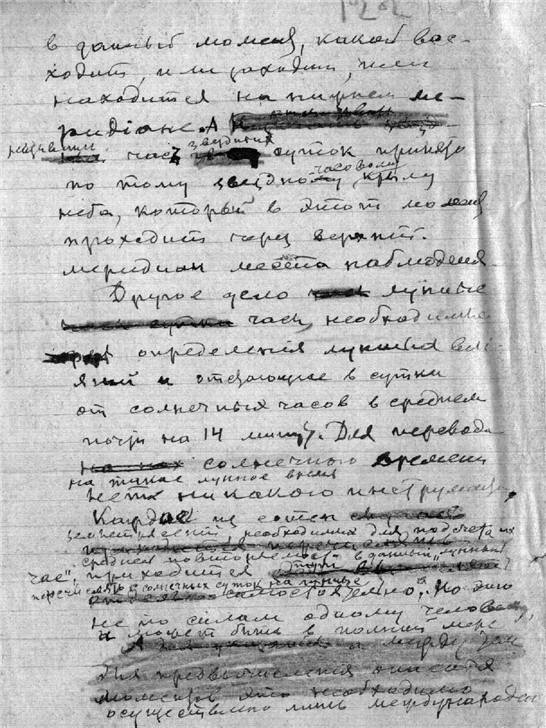 в данный момент, какой вос-
ходит, или заходит, или
находится на нижнем ме-
ридиане. А
называть час звездных суток принято
по тому звездному часовому кругу
неба, который в этот момент
проходит через верхний
меридиан места наблюдения.
Другое дело лунные
часы, необходимые
определения лунных вли-
яний и отстающие в сутки
от солнечных часов в среднем
почти на 14 минут. Для перевода
солнечного времени
на такое лунное время
нет никакого инструмента.
Каждое из сотен
необходимых для подсчета их
средней повторяемости в данный "лунный
час", приходится
перечислять с солнечных суток на лунные
самостоятельно. Но это
не по силам одному человеку,
и может быть в полной мере
А
Для предвычисления
моментов это необходимо
осуществлено лишь международ